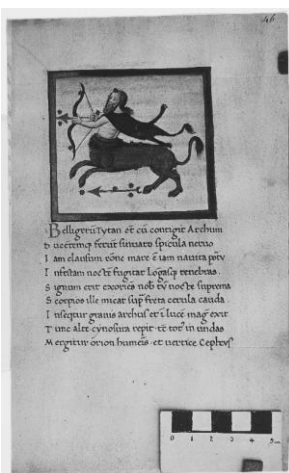 46
Belligerū Tytan cū contigit Archum
Ducētemq; ferit sinuato spicula neruo
Iam clausum mare ē iam nauita portū
Infestam nocte fugitat Longasq; tenebras
Signum erit exoriēs nob nocte suprema
Scorpios ille micat sup freta cerula cauda
Inseqtur grauis archus et ī luce mag exit
Tunc alte cynosura repit et tot in undas
Mergitur orion humeris et uertice Cephus
0 1 2 3 4 5